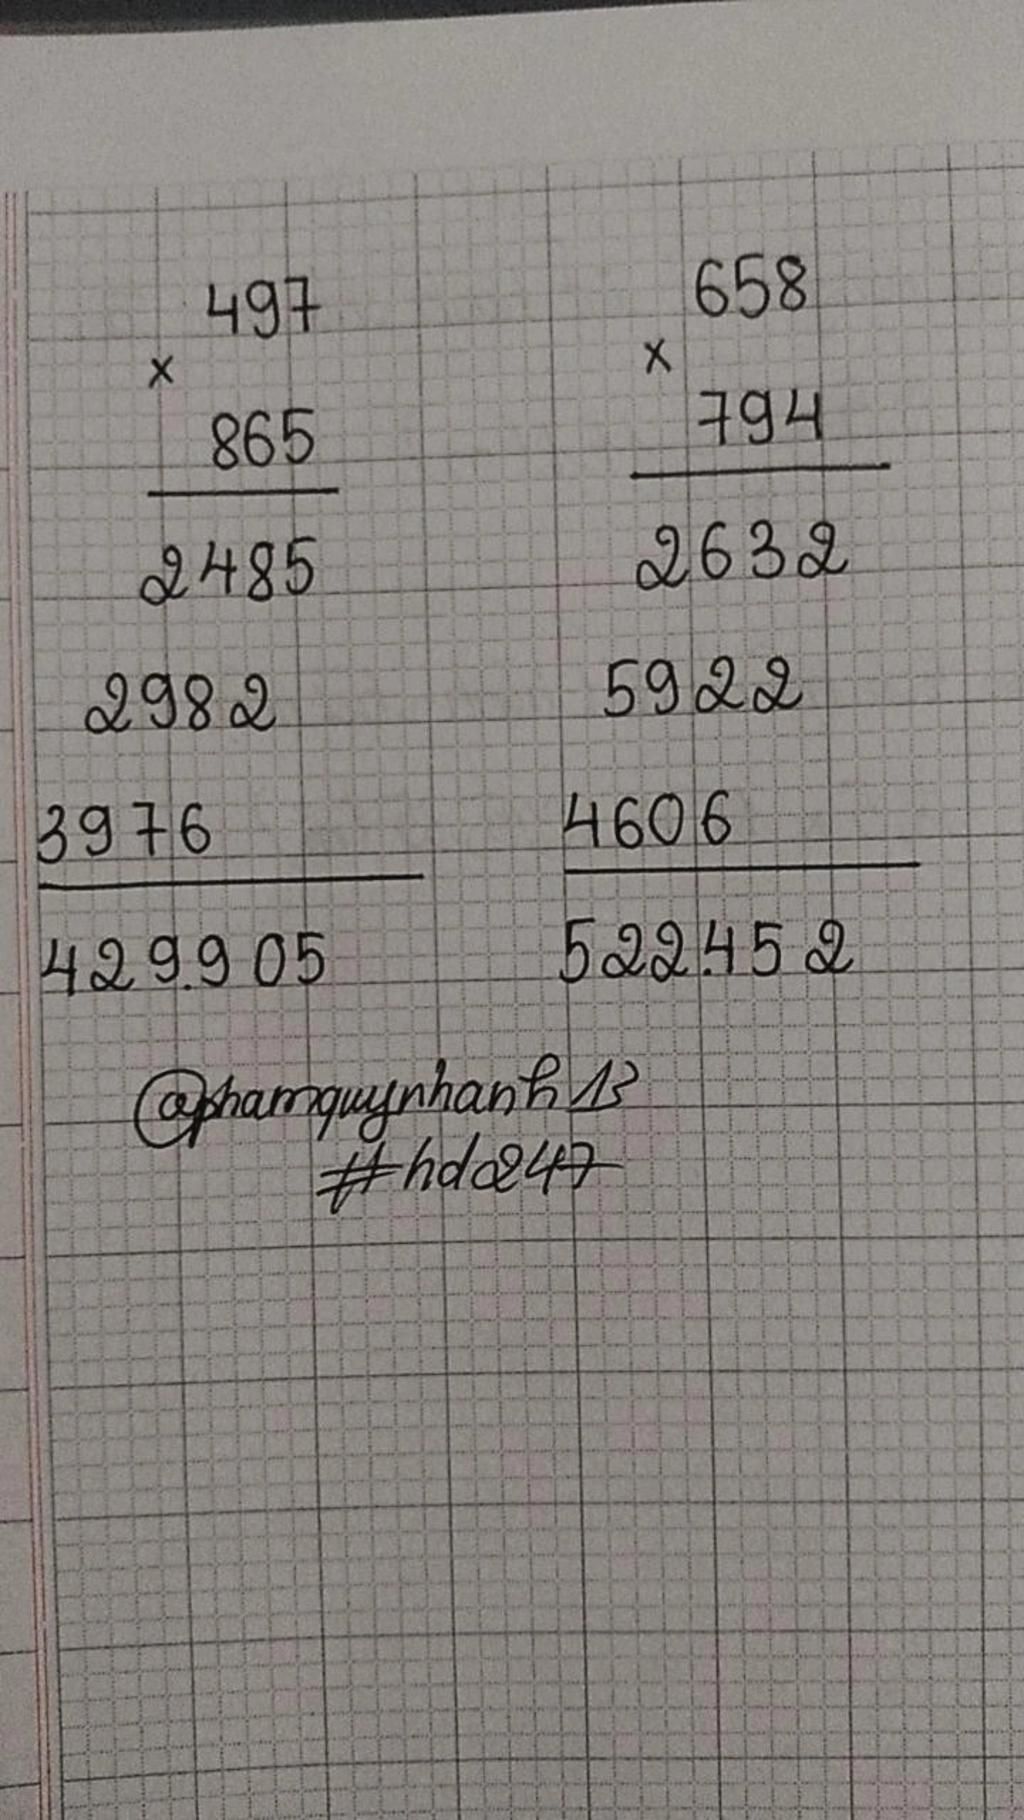 497
×
865
2485
2982
3976
429.905
658
×
794
2632
5922
4606
522.452
@phamquynhanh13
#hdo247